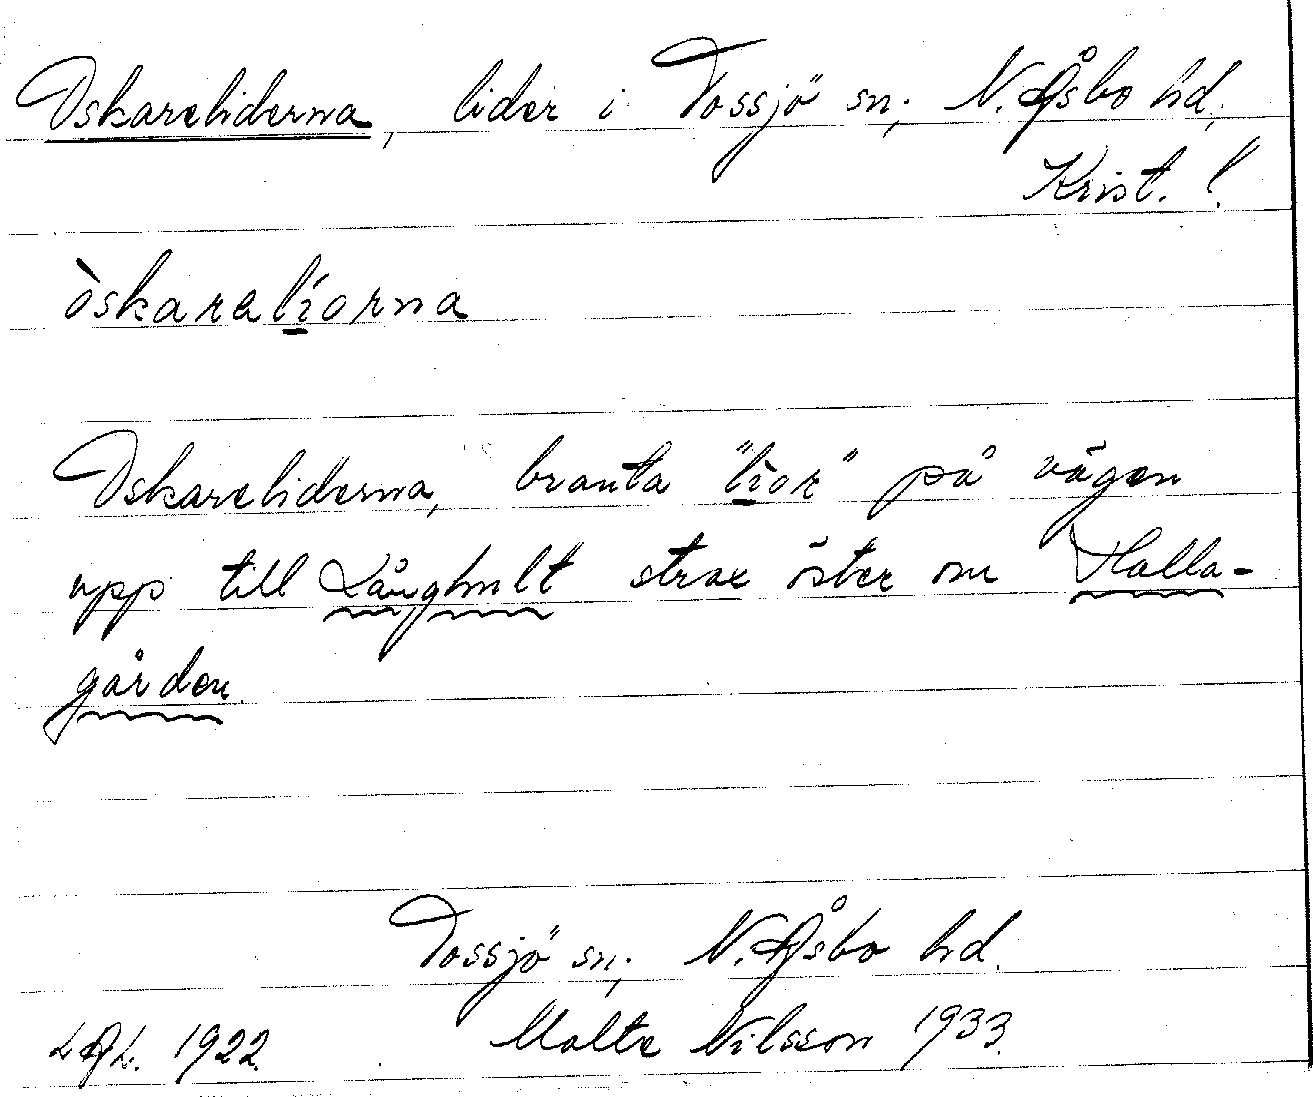 Oskareliderna, lider i Tossjö sn; N. Åsbo hd,
Krist. l.
òskaralíorna
Oskareliderna, branta "lìor" på vägen
upp till Långhult strax öster om Halla-
gården.
Tossjö sn; N. Åsbo hd.
LAL. 1922. Malte Nilsson 1933.